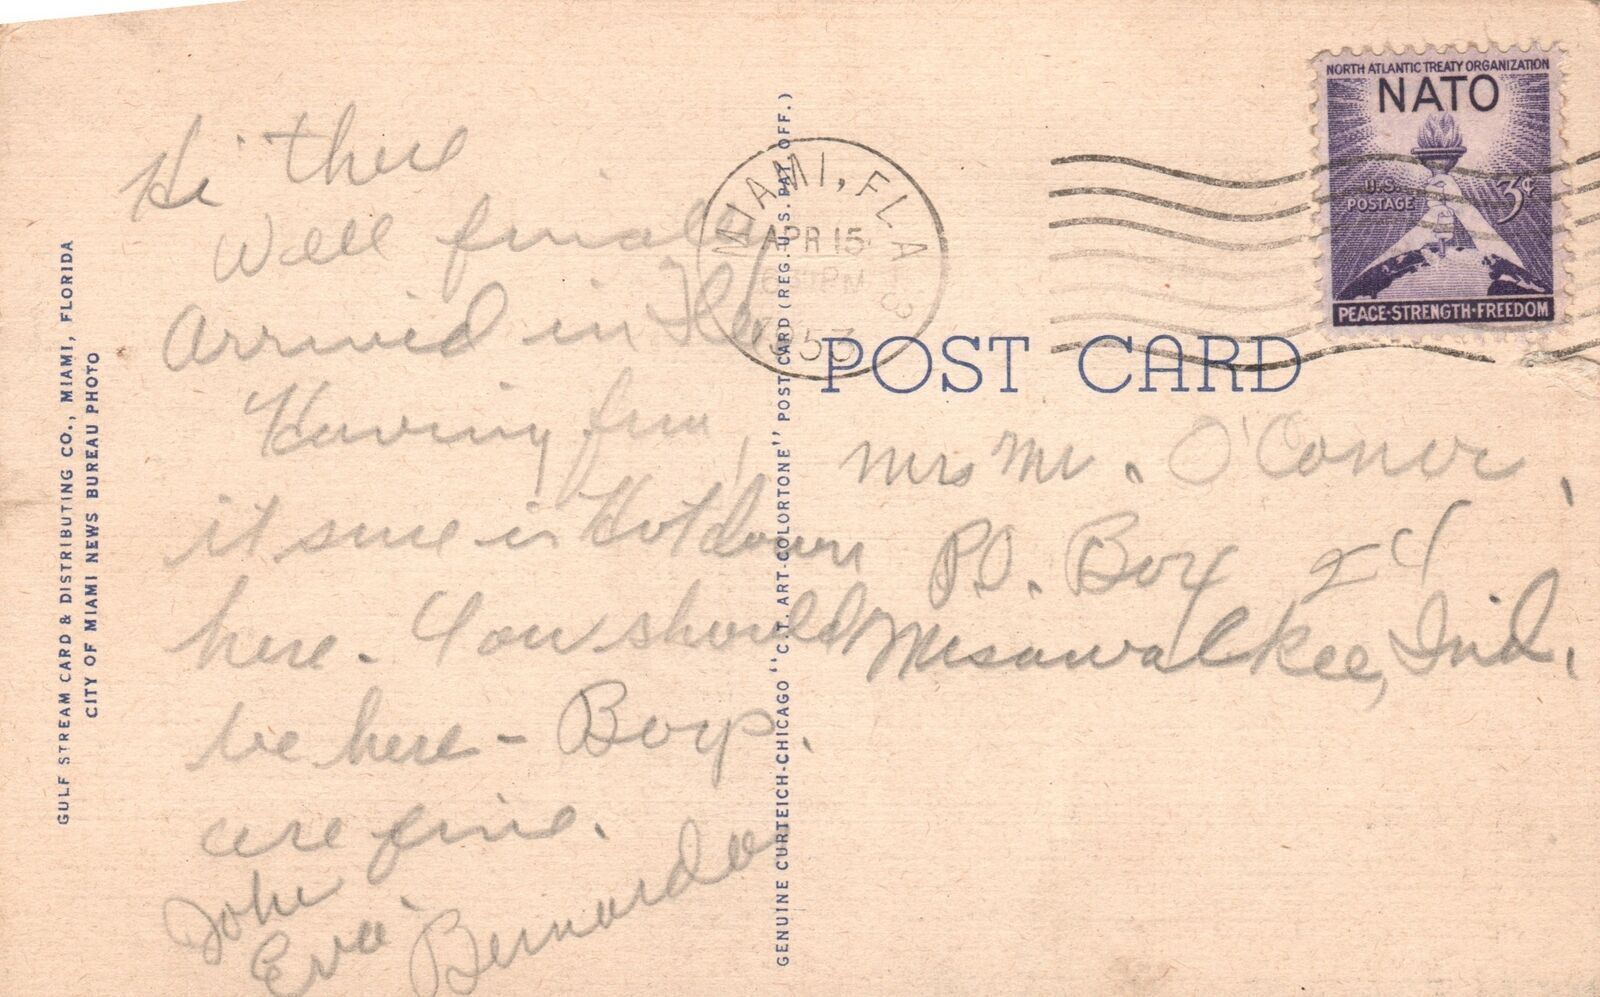 GULF STREAM CARD & DISTRIBUTING CO., MIAMI, FLORIDA
CITY OF MIAMI NEWS BUREAU PHOTO
Hi there
Well finally
Arrived in Fla
Having fun,
it sure is Hot down
here. You should
be here - Boys.
are fine.
John
Eva.
Bernardo
GENUINE CURTEICH-CHICAGO "C.T. ART-COLORTONE" POST CARD (REG. U.S. PAT. OFF.)
MIAMI, FLA
APR 15
PM
1953
3
NORTH ATLANTIC TREATY ORGANIZATION
NATO
U.S. POSTAGE
3¢
PEACE·STRENGTH·FREEDOM
POST CARD
Mrs Mr. O'Conor,
P.O. Box 24
Mesawalkee, Ind.